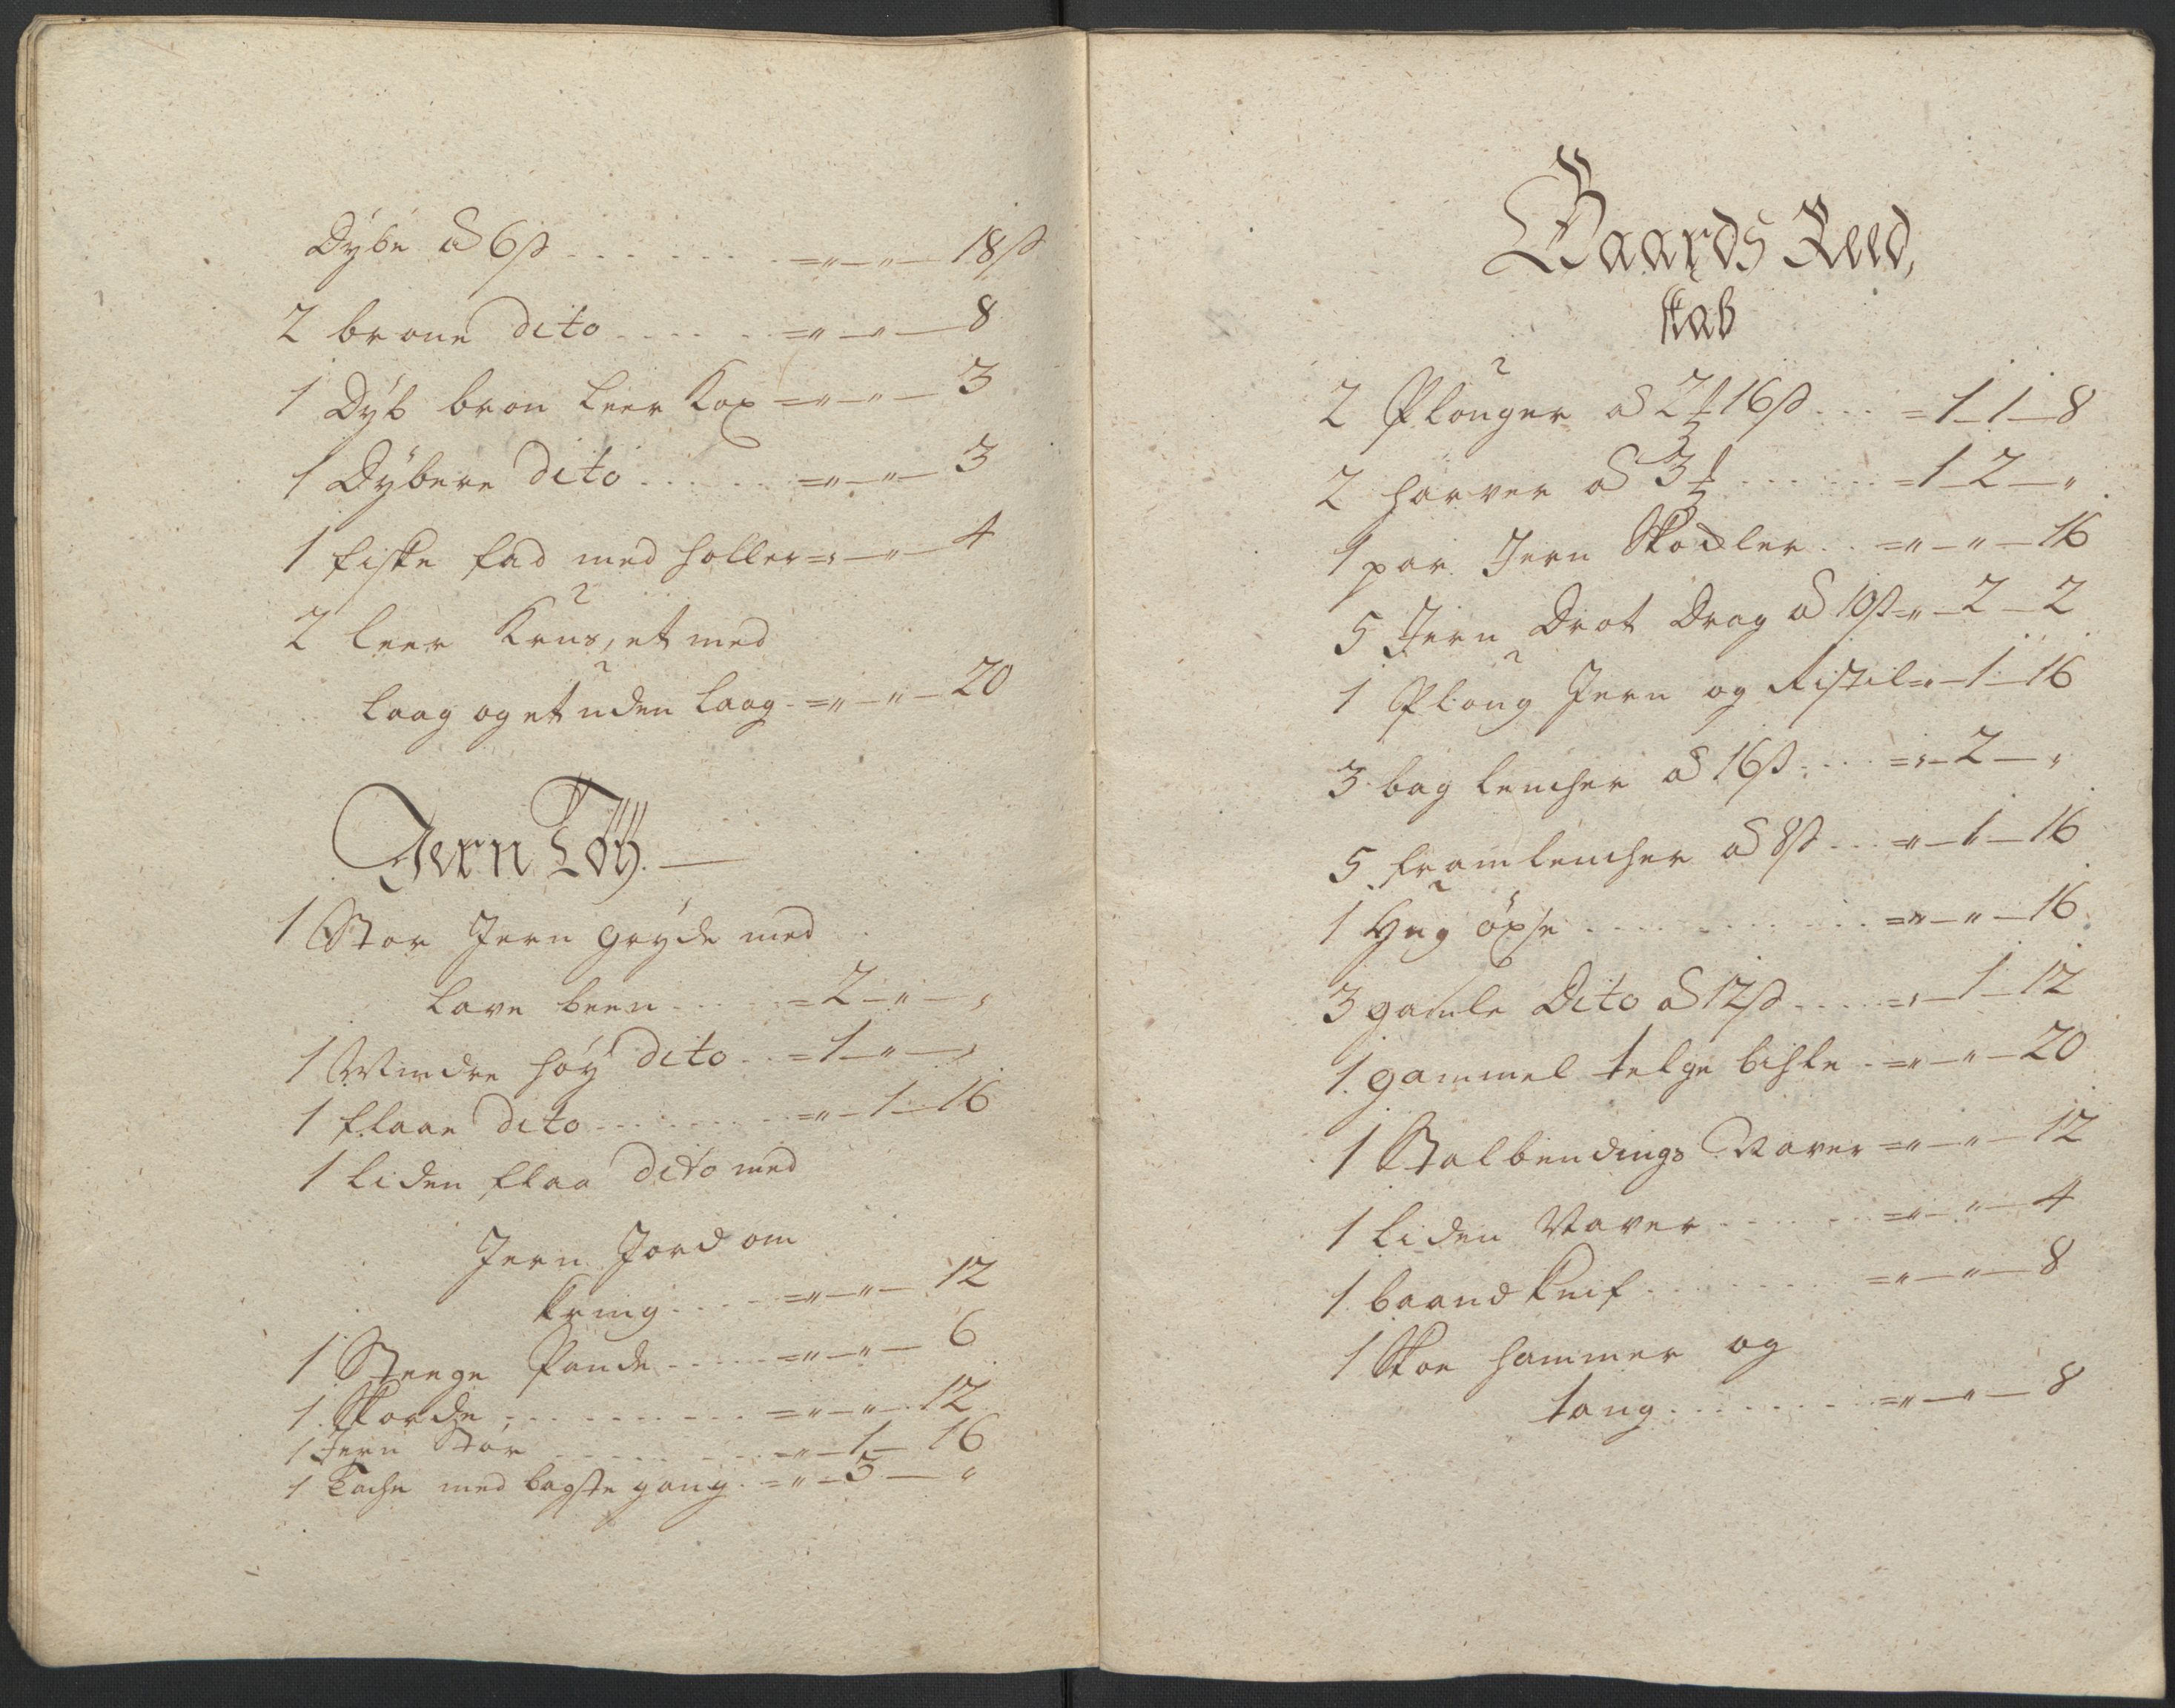 Dybe a 6 s . . . . . . . =„—„—18 s
2 brone dito . . . . . =„—„—8
1 Dyb bron leer Kop =„—„—3
1 Dybere Dito . . . . . =„—„—3
1 fiske fad med holler =„—„—4
2 leer Krus, et med
laag og et uden laag . =„—„—20
Jern Töÿ. —
1 Stor Jern gryde med
lave been . . . . =2—„—„
1 Mindre höy dito . . =1—„—„
1 flaae dito . . . . . . . =„—1—16
1 liden flaa dito med
Jern Jord om
kring . . . . =„—„—12
1 Steege Pande . . . . . =„—„—6
1 Skorde . . . . . . . . . =„—„—12
1 Jern Stör . . . . . . . =„—1—16
1 med bagste gang . =„—3—„
Gaards Reed,
skab
2 Plouger a 2 16 s . . . =1—1—8
2 harver a 3 . . . . . =1—2—„
1 par Jern Skodler . . =„—„—16
5 Jern Drot Drag a 10 s =„—2—2
1 Ploug Jern og Ristil =„—1—16
3 bag lencher a 16 s . . . . =„—2—„
5 fram lencher a 8 s . . . =„—1—16
1 Hug öxse . . . . . . . . . . =„—„—16
3 gamle Dito a 12 s . . . . =„—1—12
1 gammel telge bihle . =„—„—20
1 Stalbendings Naver =„—„—12
1 liden Naver . . . . . . =„—„—4
1 baand knif . . . . . . . =„—„—8
1 Skoe hammer og
tang . . . . . . . =„—„—8